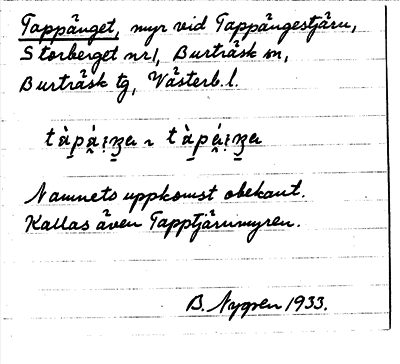 Tappänget, myr vid Tappängestjärn,
Storberget nr 1, Burträsk sn,
Burträsk tg, Västerb. l.
Namnets uppkomst obekant.
Kallas även Tapptjärnmyren.
B. Nygren 1933.